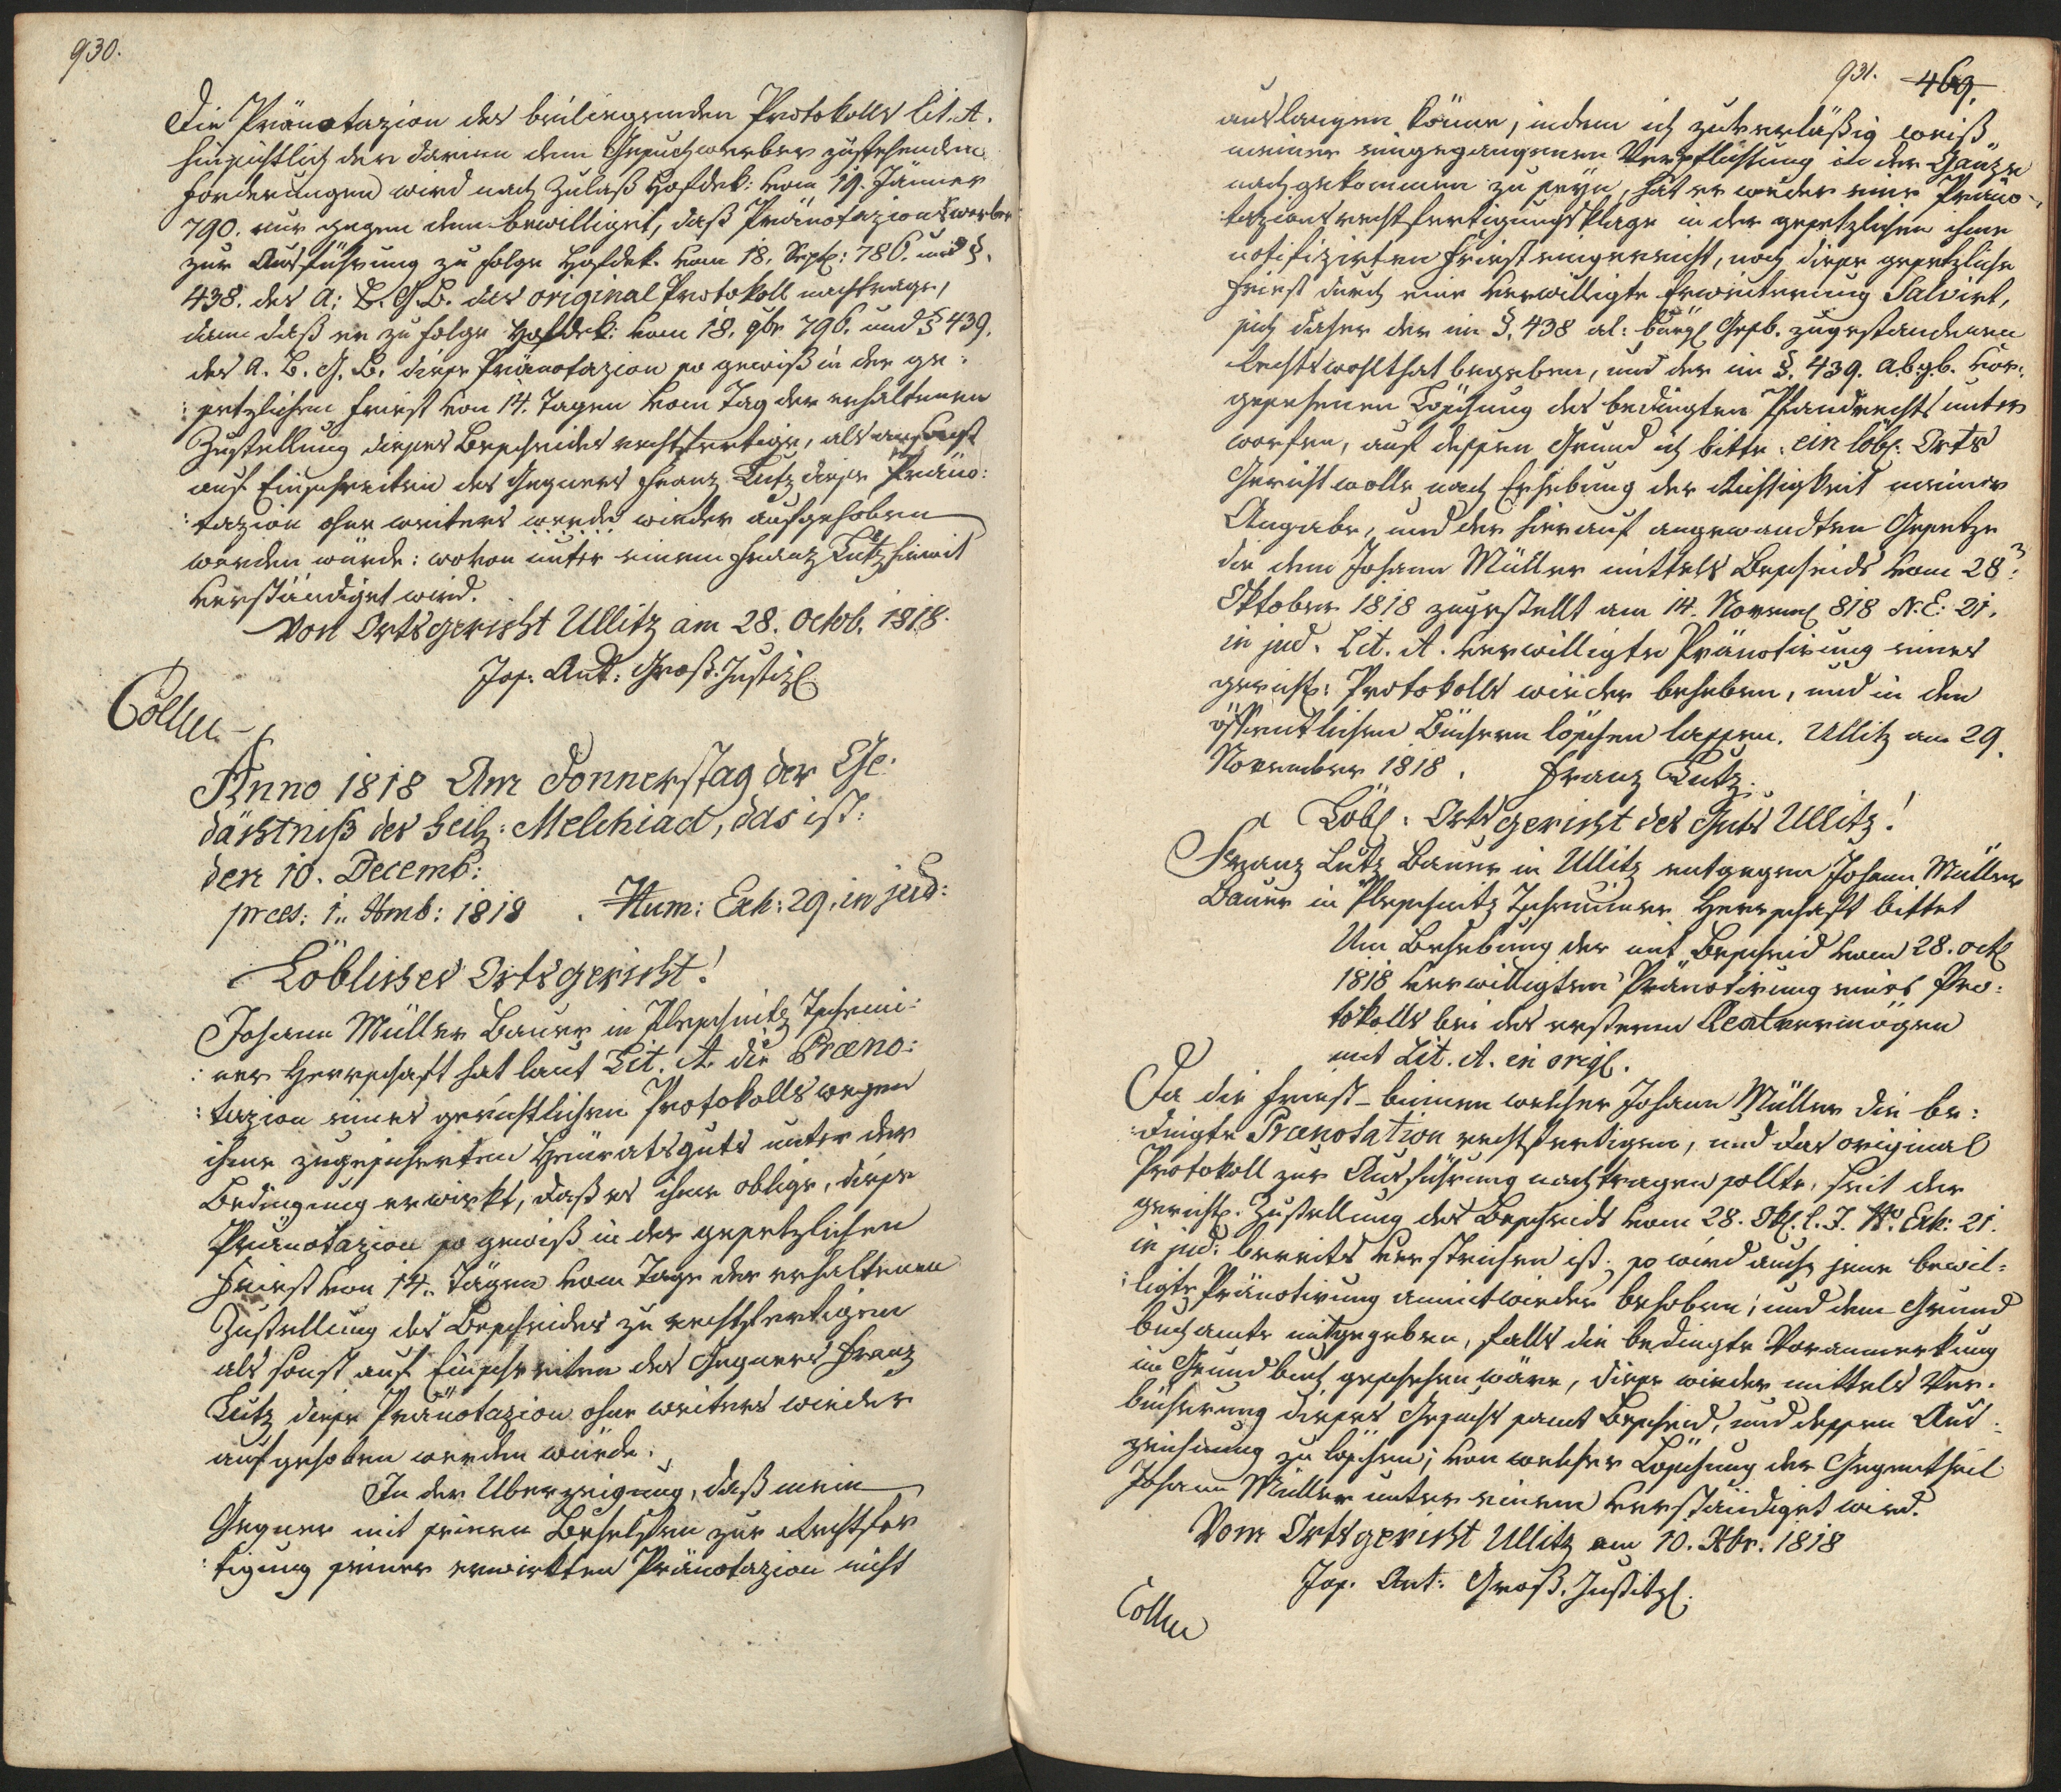 930.
Die Pränotazion des beiliegenden Protokolls lit. A.
hinsichtlich der darinn dem Gesuchwerber zustehenden
Forderungen wird nach Zulaß Hofdek: vom 19. Jänner
790. nur gegen dem bewilliget, daß Pränotazionswerber
zur Ausführung zu folge Hofdek. vom 18. Sept: 786. und §.
438. des A: B. G. B. das original Protokoll nachtrage,
dann daß er zu folge Hofdek: vom 18. 9br 796. und § 439.
des A. B. G. B. diese Pränotazion so gewiß in der ge:
:setzlichen Friest von 14. Tagen vom Tag der erhaltenen
Zustellung dieses Bescheides rechtfertige, als ansonst
auf Einschreiten des Gegners Franz Lutz diese Präno:
:tazion ohne weiters werde wieder aufgehoben
werden würde: wovon unter einem Franz Lutz hiemit
verständiget wird.
Von Ortsgericht Ullitz am 28. Octob. 1818.
Jos. Ant: Groß. Justizl
Collm
Anno 1818 Am Donnerstag der Ge:
dächtniß des heil: Melchiad, das ist:
den 10. Decemb:
præs: 1.. Xbmb: 1818 . Num: Exh: 29. in jud:
Löbliches Ortsgericht!
Johann Müller Bauer in Pleschnitz Tschemi:
:ner Herrschaft hat laut Lit. A. die Præno:
:tazion eines gerichtlichen Protokolls wegen
ihme zugesicherten Heuratsguts unter der
Bedingung erwirkt, daß es ihme oblige, diese
Pränotazion so gewiß in der gesetzlichen
Friest von 14.. Tägen vom Tage der erhaltenen
Zustellung des Bescheides zu rechtfertigen
als sonst auf Einschreiten des Gegners Franz
Lutz diese Pränotazion ohne weiters wieder
aufgehoben werden würde.
In der Uberzeigung, daß mein
Gegner mit seinen Behelfen zur Rechtfer
:tigung seiner erwirkten Pränotazion nicht
931. 469.
auslangen könne, indem ich zuverläßig weiß
meiner eingegangenen Verpflichtung in der Gänze
nachgekommen zu seyn, hat er weder eine Präno-
:tazionsrechtfertigungsklage in der gesetzlichen ihme
notifizirten Friest eingereicht, noch diese gesetzliche
Friest durch eine verwilligte Erweiterung Salvirt,
sich daher der im §. 438 al: bürgl Gesb. zugestandenen
Rechtswohlthat begeben, und der im §. 439. a.b.g.b. vor:
gesehenen Löschung des bedingten Pfandrechts unter
worfen, auf dessen Grund ich bitte: ein löbl. Orts
Gericht wolle nach Erhebung der Richtigkeit meiner
Angabe, und der hierauf angewandten Gesetze
die dem Johann Müller mittels Bescheids vom 28:
Oktober 1818 zugestellt am 14. Novemb 818 N. E: 21.
in jud. Lit. A. verwilligte Pränotirung eines
gerichtl: Protokolls wieder beheben, und in den
öffentlichen Büchern löschen lassen. Ullitz am 29.
November 1818. Franz Lutz.
Löbl: Ortsgericht des Guts Ullitz!
Franz Lutz Bauer in Ullitz entgegen Johann Müller
Bauer in Pleschnitz Tscheminer Herrschaft bittet
Um Behebung der mit Bescheid vom 28. Octb
1818 verwilligten Pränotirung eines Pro:
tokolls bei des ersteren Realvermögen
mit Lit. A. in origl.
Da die Friest binnen welcher Johann Müller die be:
:dingte Prænotation rechtfertigen, und das original
Protokoll zur Ausführung nachtragen sollte, seit der
gerichtl. Zustellung des Bescheids vom 28. Okt. l. J. No Exh: 21.
in jud: bereits verstrichen ist; so wird auch jene bewil:
:ligte Pränotirung anmit wieder behoben; und dem Grund
buchamte mitgegeben, falls die bedingte Voranmerkung
im Grundbuch geschehen wäre, diese wieder mittels Ver:
bücherung dieses Gesuchs samt Bescheid, und dessen Aus:
zeichnung zu löschen; von welcher Löschung der Gegentheil
Johann Müller unter einem verständiget wird.
Vom Ortsgericht Ullitz am 10. Xbr. 1818
Jos. Ant: Groß. Justitzl.
Collm